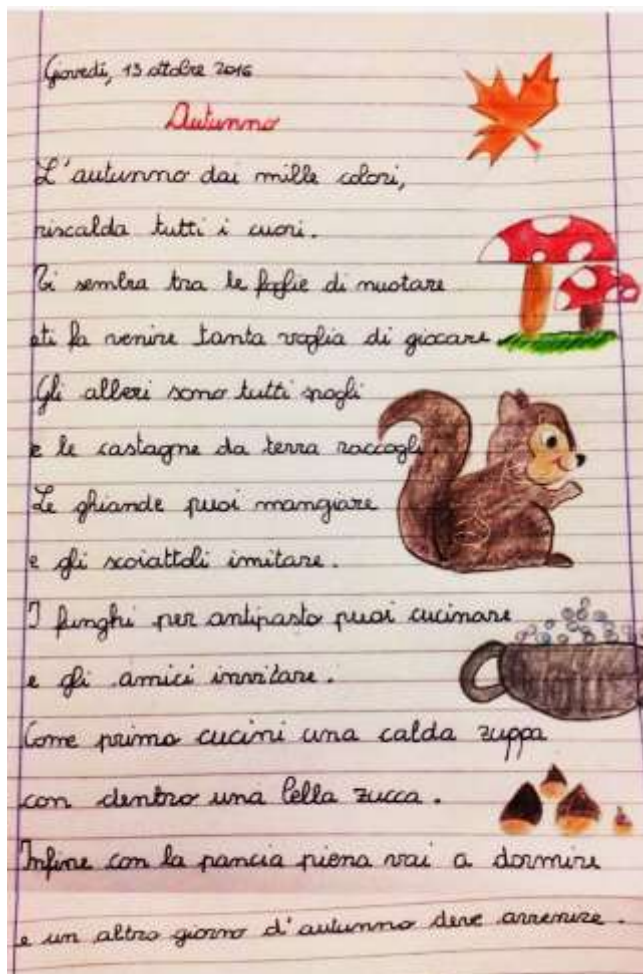 Giovedì, 13 ottobre 2016
Autunno
L'autunno dai mille colori,
riscalda tutti i cuori.
Ti sembra tra le foglie di nuotare
e ti fa venire tanta voglia di giocare.
Gli alberi sono tutti spogli
e le castagne da terra raccogli.
Le ghiande puoi mangiare
e gli scoiattoli imitare.
I funghi per antipasto puoi cucinare
e gli amici invitare.
Come primo cucini una calda zuppa
con dentro una bella zucca.
Infine con la pancia piena vai a dormire
e un altro giorno d'autunno deve avvenire.